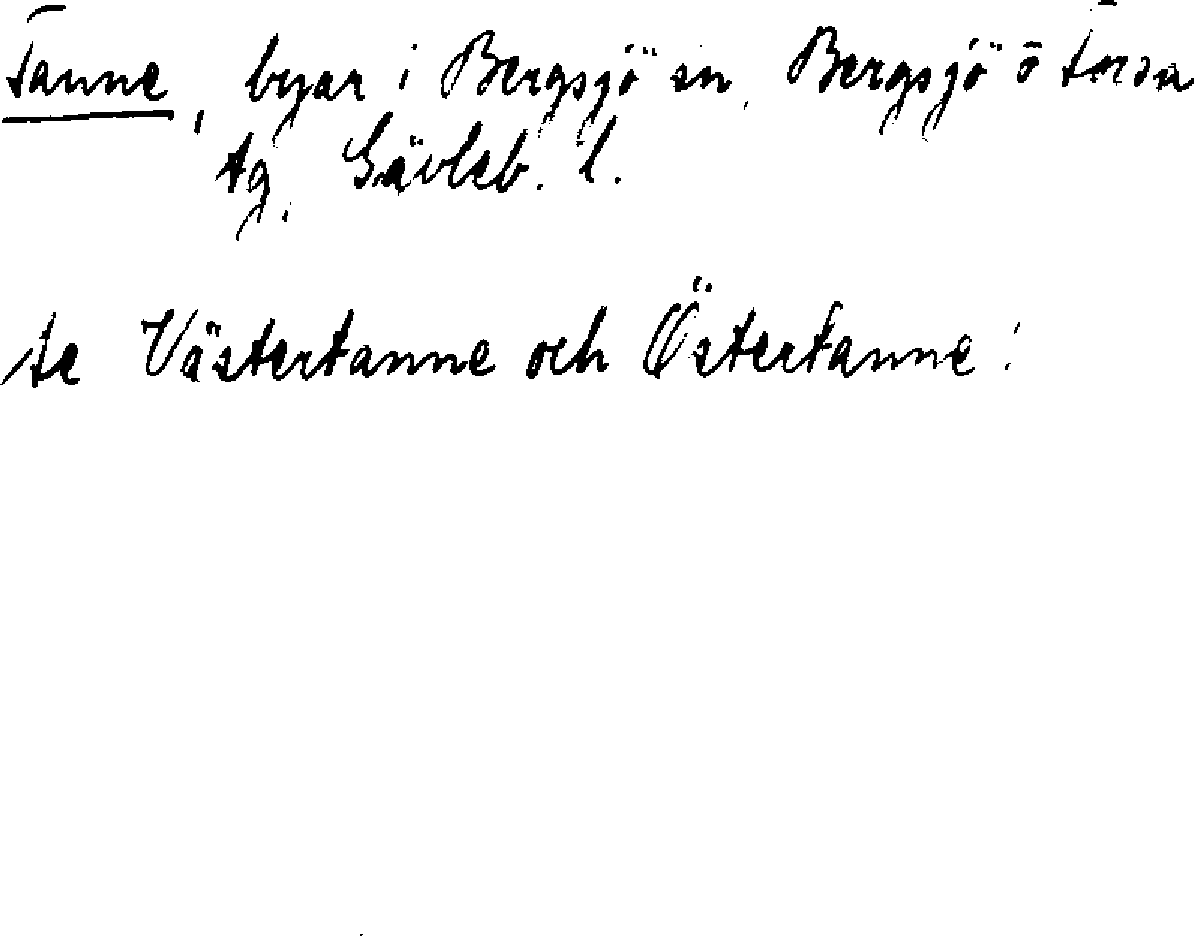 Tanne, byar i Bergsjö sn, Bergsjö o Forsa
tg, Gävleb. l.
se Västertanne och Östertanne!